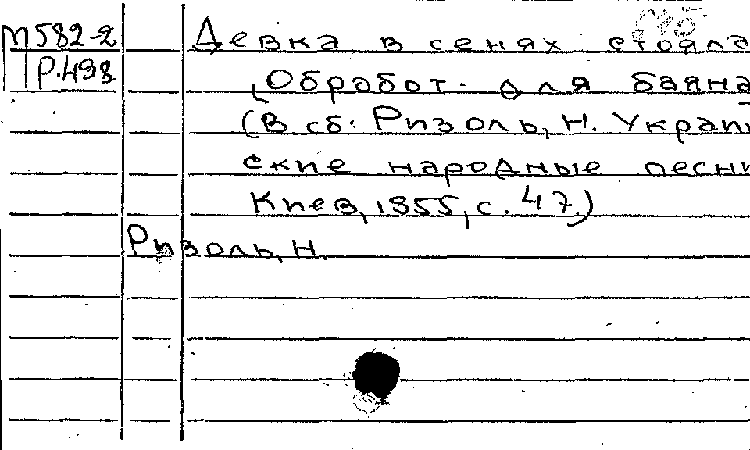 М582-2 Девка в сенях стояла
Р.498 (Обробот. для баяна
(В сб: Ризоль, Н. Украин
ские народные песни
Киев, 1955, с. 47.)
Ризоль, Н.